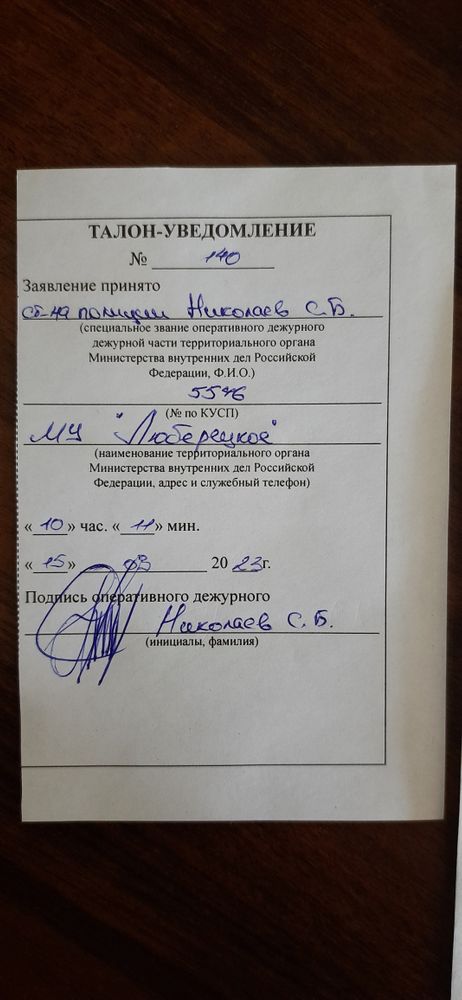 ТАЛОН-УВЕДОМЛЕНИЕ
№ 140
Заявление принято
ст-на полиции Николаев С.Б.
(специальное звание оперативного дежурного
дежурной части территориального органа
Министерства внутренних дел Российской
Федерации, Ф.И.О.)
5576
(№ по КУСП)
МУ "Люберецкое"
(наименование территориального органа
Министерства внутренних дел Российской
Федерации, адрес и служебный телефон)
«10» час. «11» мин.
«15» 03 2023г.
Подпись оперативного дежурного
Николаев С.Б.
(инициалы, фамилия)